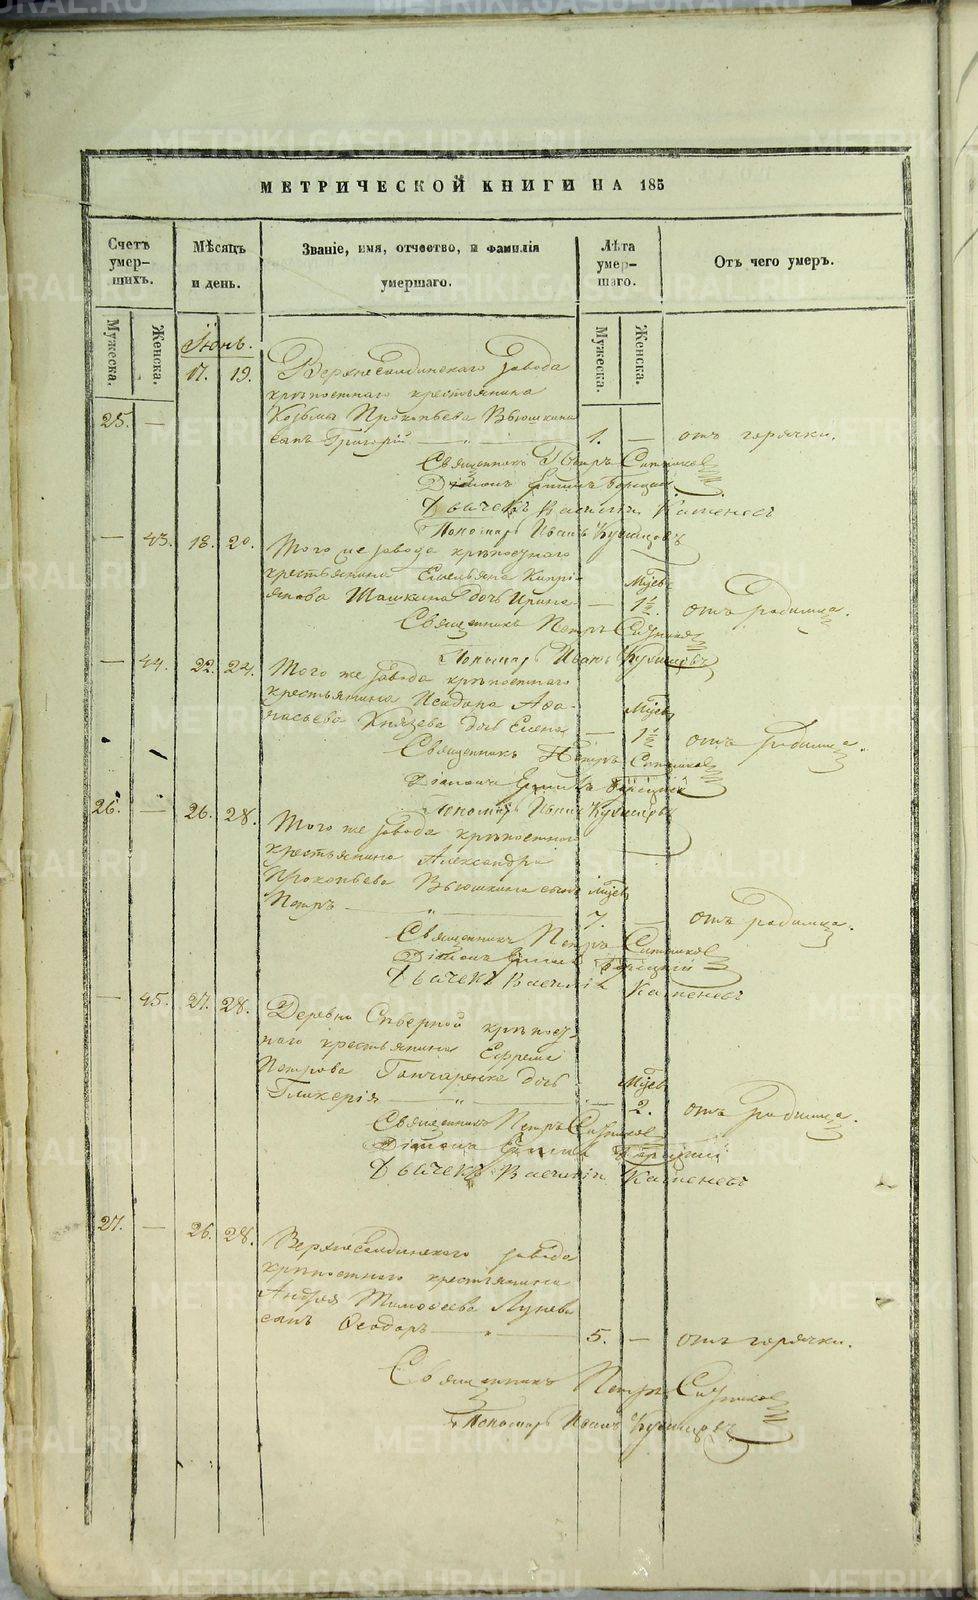 МЕТРИЧЕСКОЙ КНИГИ НА 185
Счетъ умер-шихъ.
Мѣсяцъ и день.
Званіе, имя, отчество, и фамилія умершаго.
Лѣта умер-шаго.
Отъ чего умеръ.
Мужеска.
Женска.
Мужеска.
Женска.
Іюнь.
17. 19. Верхнесалдинскаго завода
крѣпостнаго крестьянина
25. — Козьмы Прокопьева Вьюшкина
сынъ Григорій — „ — 1. — отъ горячки.
Священникъ Петръ Ситниковъ
Діаконъ
Дьячекъ Василій Каменевъ
Пономарь Иванъ
— 43. 18. 20. Того же завода крѣпостнаго
крестьянина Емельяна Кипрі-
янова Шашкина дочь Ирина — 1½ отъ родимца.
Священникъ Петръ Ситниковъ
Пономарь Иванъ
— 44. 22. 24. Того же завода крѣпостнаго
крестьянина Исидора Афа-
насьева Князева дочь Елена — 1½ отъ родимца.
Священникъ Петръ Ситниковъ
Діаконъ
Пономарь Иванъ
26. — 26. 28. Того же завода крѣпостнаго
крестьянина Александра
Прокопьева Вьюшкина сынъ
Петръ — „ — 7. — отъ родимца.
Священникъ Петръ Ситниковъ
Діаконъ
Дьячекъ Василій Каменевъ
— 45. 27. 28. Деревни Сѣверной крѣпост-
наго крестьянина Ефрема
Петрова Гончаренка дочь
Гликерія — „ — 2. отъ родимца.
Священникъ Петръ Ситниковъ
Діаконъ
Дьячекъ Василій Каменевъ
27. — 26. 28. Верхнесалдинскаго завода
крѣпостнаго крестьянина
Андрея Тимофеева Лунева
сынъ Феодоръ — „ — 5. — отъ горячки.
Священникъ Петръ Ситниковъ
Пономарь Иванъ
METRIKI.GASO-URAL.RU